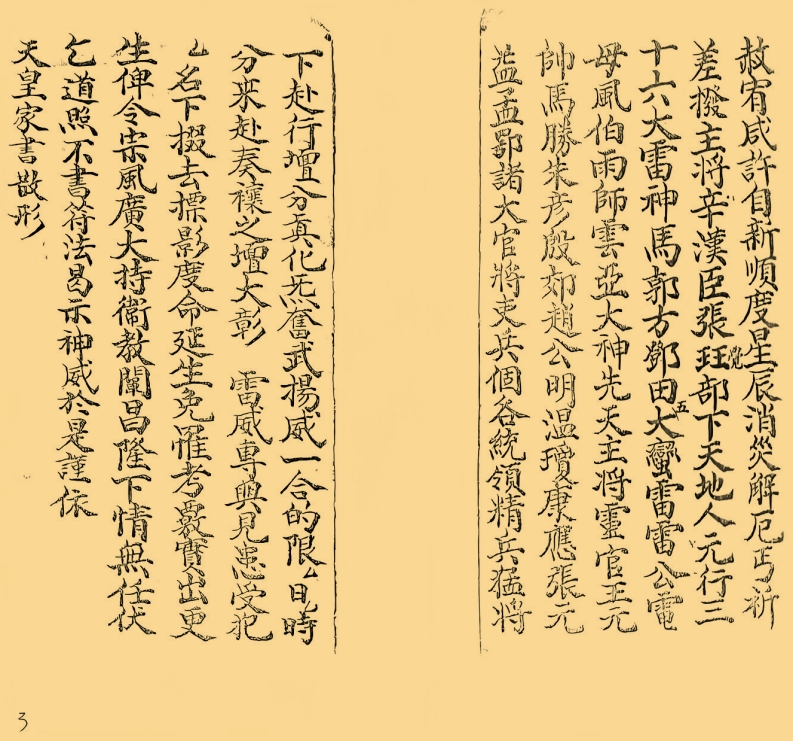 赦宥咸許自新順度星辰消災解厄丐祈
差撥主將辛漢臣張珏覺部下天地人元行三
十六大雷神馬郭方鄧田五大蠻雷雷公電
母風伯雨師雲亞大神先天主將靈官王元
帥馬勝朱彥殷郊趙公明溫瓊康應張元
益孟鄂諸大官將吏兵個各統領精兵猛將
下赴行壇分真化炁奮武揚威一合的限厶日時
分來赴奏禳之壇大彰 雷威專與見患受犯
厶名下掇去摽影度命延生免罹考覈實出更
生俾令宗風廣大持衛教闡昌隆下情無任伏
乞道照不書符法曷示神威於是謹依
天皇家書散形
3